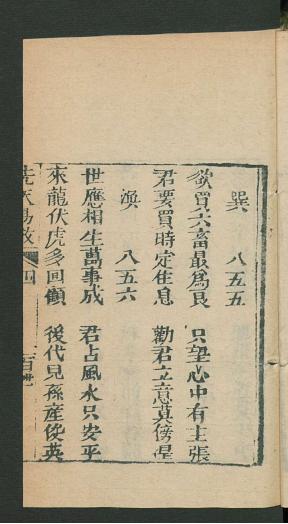 巽　八五五
欲買六畜最爲良　只望心中有主張
君要買時定生息　勸君立意莫傍徨
渙　八五六
世應相生萬事成　君占風水只安平
來龍伏虎多回顧　後代兒孫產俊英
先天易數　四